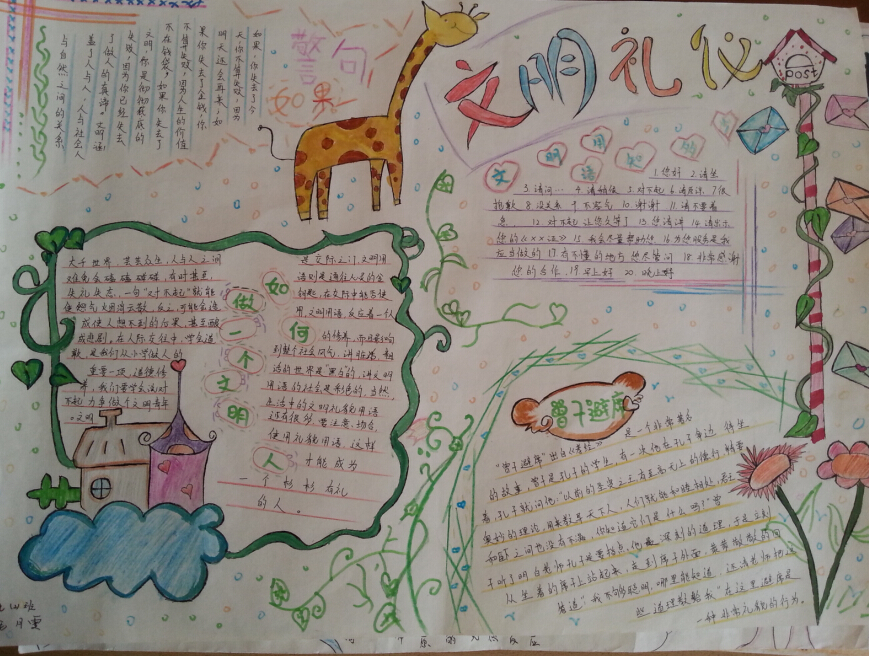 文明礼仪
post
警句
如果
如果,你失去了今
天,你不算失败,因为
明天还会再来,如
果你失去了金钱,你
不算失败,因为人生的价值
不在钱袋,如果你失去了
文明,你是彻彻底底的
失败,因为你已经失去
了做人的真谛。文明涵
盖了人与人,人与社会,人
与自然之间的关系
文明用语知
1.您好 2.请坐
3.请问… 4.请稍候 5.对不起 6.请原谅 7.很
抱歉 8.没关系 9.不客气 10.谢谢 11.请不要着
急 12.对不起,让您久等了 13.您请讲 14.请出示
您的《××证》 15.我会尽量帮助您 16.为您服务是我
应当做的 17.有不懂的地方,您尽管问 18.非常感谢
您的合作 19.早上好 20.晚上好
如何
做一个文明
人
大千世界,芸芸众生,人与人之间
难免会磕磕碰碰,有时甚至
失礼失态,一句“对不起”就能
使怨气火消云散,反之,可能会造
成使人想不到的后果,甚至酿
成悲剧,在人际交往中,学会道
歉,是我们从小学做人的
重要一项,道德修
养,我们要学会说对
不起,力争做个文明青年
。文明
是交际之门,文明用
语则是通往人心的金
钥匙,在交际中能否使
用文明用语,反应着一个人
的修养,而且影响
到整个社会风气,讲粗话、脏
话的世界是“黑白”的,讲文明
用语的社会是彩色的,当然,
生活中的文明礼貌用语
还有很多,要注意场合,
使用礼貌用语,这样
才能成为
一个彬彬有礼
的人。
曾子避席
“曾子避席”出自《孝经》,是一个非常著名
的故事,曾子是孔子的学生,有一次他在孔子身边侍坐
着,孔子就问他:“以前的圣贤之王有至高无上的德行,精要
奥妙的理论,用来教导天下人,人们就能和睦相处,君王
和臣下之间也没有不满,你知道它们是什么吗?”曾
子听了,明白老师孔子是要指点他最深刻的道理,于是立刻
从坐着的席子上站起来,走到席子外面,恭恭敬敬的回
答道“我不够聪明,哪里能知道,还请老师把这
些道理教给我”在这里避席是
一种非常礼貌的行为。